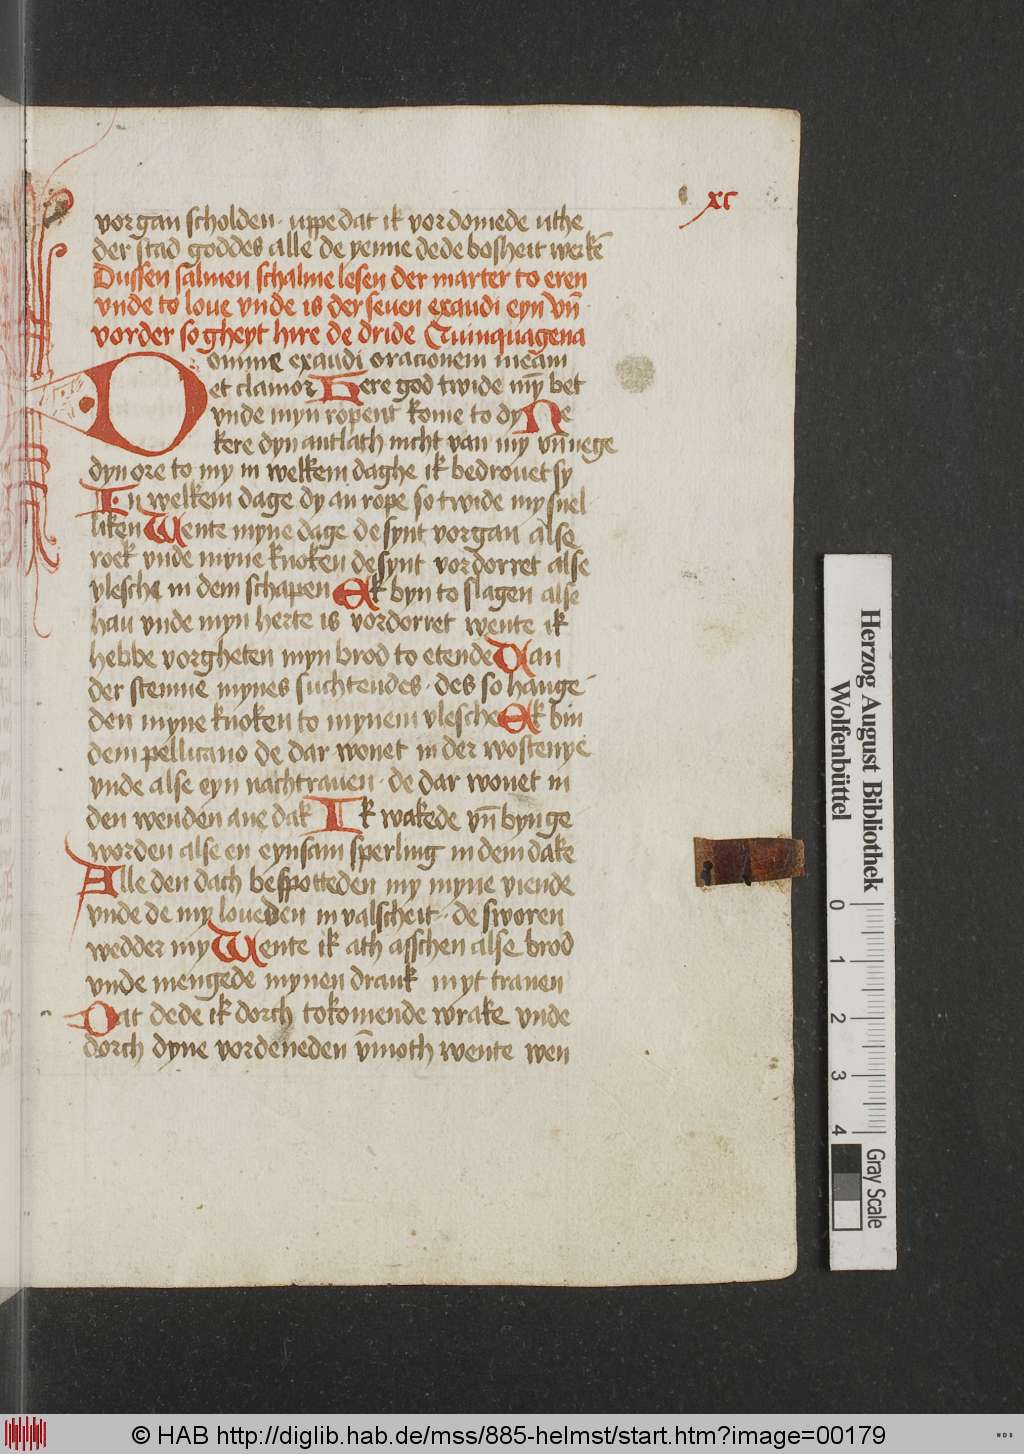 xc
vorgan scholden · uppe dat ik vordomede uthe
der stad goddes alle de yenne dede bosheit werkē
Dussen salmen schalme lesen der marter to eren
vnde to loue vnde is der seuen exaudi eyn vn̄
vorder so gheyt hire de dride Quinquagena
Domine exaudi oracionem meam
et clamor Here god twide my̅ bet
vnde myn ropent kome to dy Ne
kere dyn antlath nicht van my vn̄ nege
dyn ore to my in welkem daghe ik bedrouet sy
In welkem dage dy an rope so twide my snel
liken Wente myne dage de synt vorgan alse
roek vnde myne knoken de synt vordorret alse
vlesche in dem schapen Ek byn to slagen alse
hau vnde myn herte is vordorret wente ik
hebbe vorgheten myn brod to etende Uan
der stemne mynes suchtendes · des so hange
den myne knoken to mynem vlesche Ek bin
dem pellicano de dar wonet in der wostenye
vnde alse eyn nachtrauen · de dar wonet in
den wenden ane dak Ik wakede vn̄ byn ge
worden alse en eynsam sperling in dem dake
Alle den dach bespotteden my myne viende
vnde de my loueden in valscheit · de sworen
wedder my Wente ik ath asschen alse brod
vnde mengede mynen drank myt tranen
Dat dede ik dorch tokomende wrake vnde
dorch dyne vordeneden v̄moth wente wen
Herzog August Bibliothek
Wolfenbüttel
0 1 2 3 4
Gray Scale
© HAB http://diglib.hab.de/mss/885-helmst/start.htm?image=00179